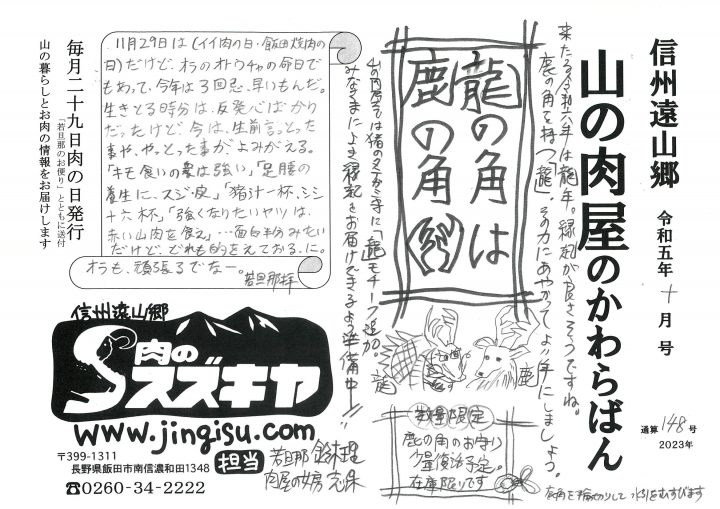 信州遠山郷
令和五年十月号
山の肉屋のかわらばん
通算148号
2023年
来たる令和六年は龍年。縁起が良さそうですね。
鹿の角を持つ「龍」。その力にあやかってよい年にしましょう。
龍の角は
鹿の角
山の肉屋では猪の
「龍」モチーフ追加。
みなさまによき縁起をお届けできるよう準備中!!
龍
鹿
数量限定
鹿の角のお守り
少量復活予定。
在庫限りです
鹿角を輪切りして
むすびます
11月29日は(イイ肉の日・飯田焼肉の
日)だけど、オラのオトウチャの命日で
もあって、今年は3回忌、早いもんだ。
生きとる時分は、反発心ばかり
だったけど、今は、生前言っとった
事や、やっとった事がよみがえる。
「キモ食いの業は強い」「足腰の
養生に、スジ・皮」「猪汁一杯、シシ
十六杯」「強くなりたいヤツは、
赤い山肉を食え」…面白半分みたい
だけど、どれも的をえておるに。
オラも、頑張るでなー。
若旦那拝
毎月二十九日肉の日発行
「若旦那のお便り」とともに送付
山の暮らしとお肉の情報をお届けします
信州遠山郷
肉のスズキヤ
www.jingisu.com
〒399-1311
長野県飯田市南信濃和田1348
☎0260-34-2222
担当
若旦那 鈴木理
肉屋の女房